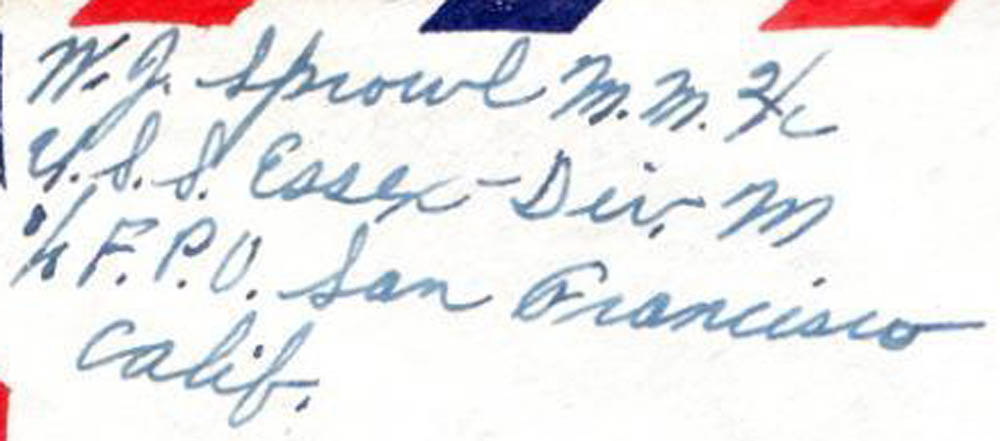 W. J. Sprowl M.M. 2/c
U.S.S. Essex - Div. M
℅ F.P.O. San Francisco
Calif.